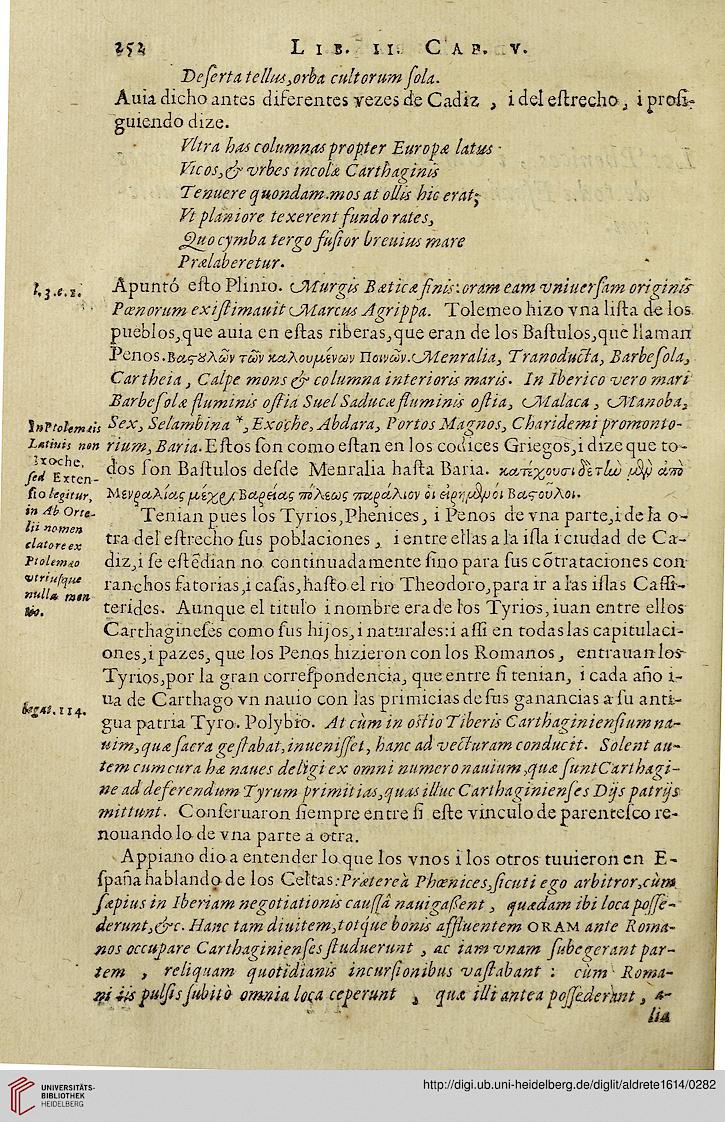 252 LIB. II. CAP. V.
Deserta tellus,orba cultorum sola.
Auia dicho antes diferentes vezes de Cadiz , i del estrecho , i prosi-
guiendo dize.
Vltra has columnas propter Europæ latus
Vicos,& vrbes incolæ Carthaginis
Tenuere quondam.mos at ollis hic erat;
Vt planiore texerent fundo rates,
Quo cymba tergo fusior breuius mare
Prælaberetur.
l.3.c.1.
Apuntó esto Plinio. Murgis Bæticæ finis:oram eam vniuersam originis
Pœnorum existimauit Marcus Agrippa. Tolemeo hizo vna lista de los
pueblos,que auia en estas riberas,que eran de los Bastulos,que llaman
Penos.Βαςȣλῶν τῶν καλουμένων Ποινῶν.Menralia, Tranoducta, Barbesola,
Cartheia , Calpe mons & columna interioris maris. In Iberico vero mari
Barbesolæ fluminis ostia Suel Saducæ fluminis ostia, Malaca , Manoba,
Sex, Selambina *, Exoche, Abdara, Portos Magnos, Charidemi promonto-
rium, Baria.Estos son como estan en los codices Griegos,i dize que to-
dos son Bastulos desde Menralia hasta Baria. κατέχουσι δὲ τἰω μϟὺ ἀπὸ
Μενραλίας μέχρι Βαρείας πόλεως παράλιον οἱ εἰρημϟύοι Βαςοῦλοι.
In Ptolemæis
Latinis non
Exoche,
sed Exten-
sio legitur,
in Ab Orte-
lii nomen
clatore ex
Ptolemæo
vtriusque
nulla men
tio.
Tenian pues los Tyrios,Phenices, i Penos de vna parte,i de la o-
tra del estrecho sus poblaciones , i entre ellas a la isla i ciudad de Ca-
diz,i se estēdian no continuadamente sino para sus cōtrataciones con
ranchos fatorias,i casas,hasto el rio Theodoro,para ir a las islas Cassi-
terides. Aunque el titulo i nombre era de los Tyrios,iuan entre ellos
Carthagineses como sus hijos,i naturales:i assi en todas las capitulaci-
ones,i pazes, que los Penos hizieron con los Romanos , entrauan los
Tyrios,por la gran correspondencia, que entre si tenian, i cada año i-
ua de Carthago vn nauio con las primicias de sus ganancias a su anti-
legat.114.
gua patria Tyro. Polybio. At cùm in ostio Tiberis Carthaginiensium na-
uim,quæ sacra gestabat,inuenisset, hanc ad vecturam conducit. Solent au-
tem cum cura hæ naues deligi ex omni numero nauium,quæ sunt Carthagi-
ne ad deferendum Tyrum primitias,quas illuc Carthaginienses Dijs patrijs
mittunt. Conseruaron siempre entre si este vinculo de parentesco re-
nouandolo de vna parte a otra.
Appiano dio a entender lo que los vnos i los otros tuuieron en E-
spaña hablando de los Celtas:Prætereà Phœnices,sicuti ego arbitror,cùm
sæpius in Iberiam negotiationis caussâ nauigassent , quædam ibi loca posse-
derunt,&c. Hanc tam diuitem,totque bonis affluentem ORAM ante Roma-
nos occupare Carthaginienses studuerunt , ac iam vnam subegerant par-
tem , reliquam quotidianis incursionibus vastabant : cùm Roma-
ni iis pulsis subitò omnia loca ceperunt , quæ illi antea possederunt , a-
lia
UNIVERSITÄTS-
BIBLIOTHEK
HEIDELBERG
http://digi.ub.uni-heidelberg.de/diglit/aldrete1614/0282